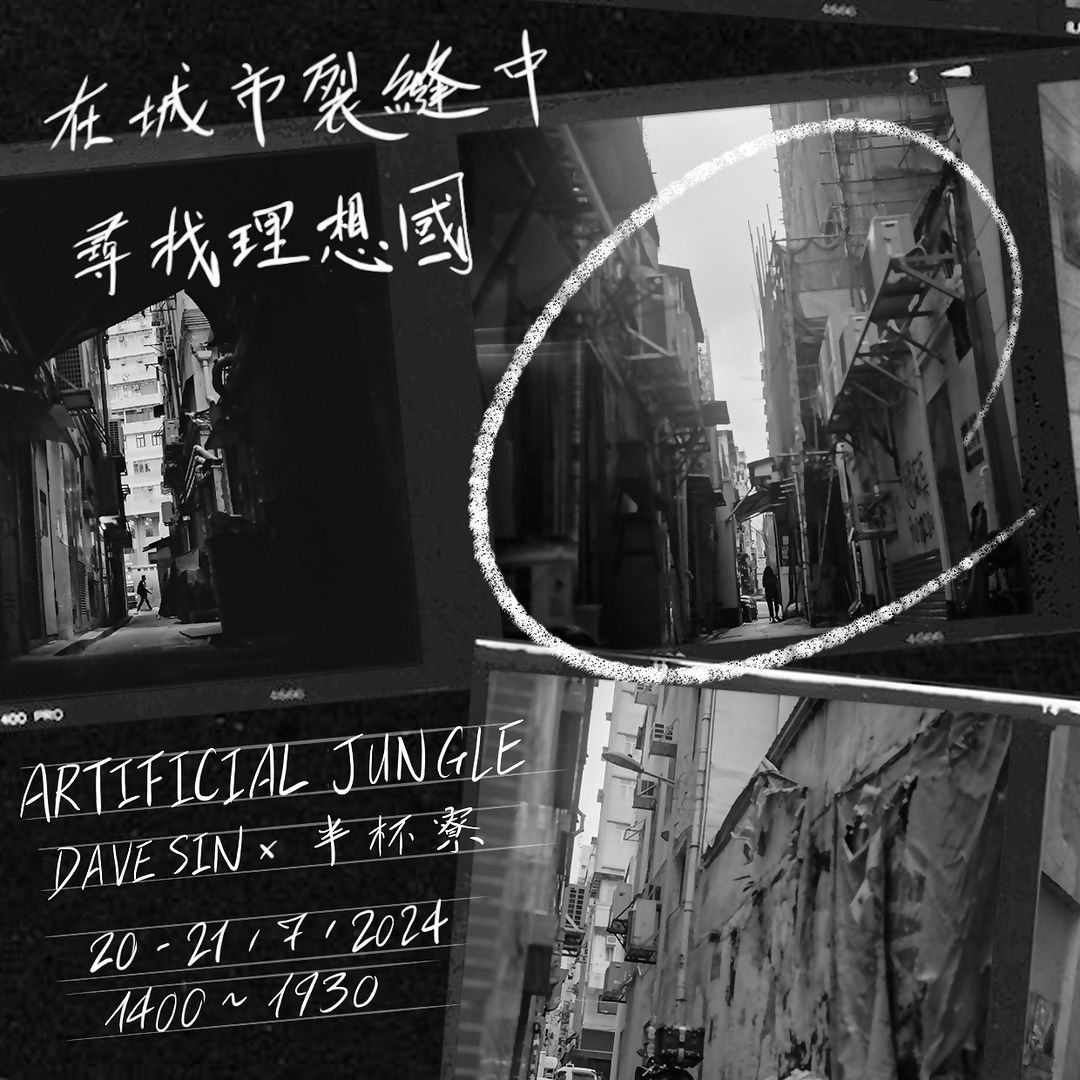 在城市裂縫中
尋找理想國
400 PRO
ARTIFICIAL JUNGLE
DAVE SIN × 半杯寮
20 - 21 , 7 , 2024
1400 ~ 1930